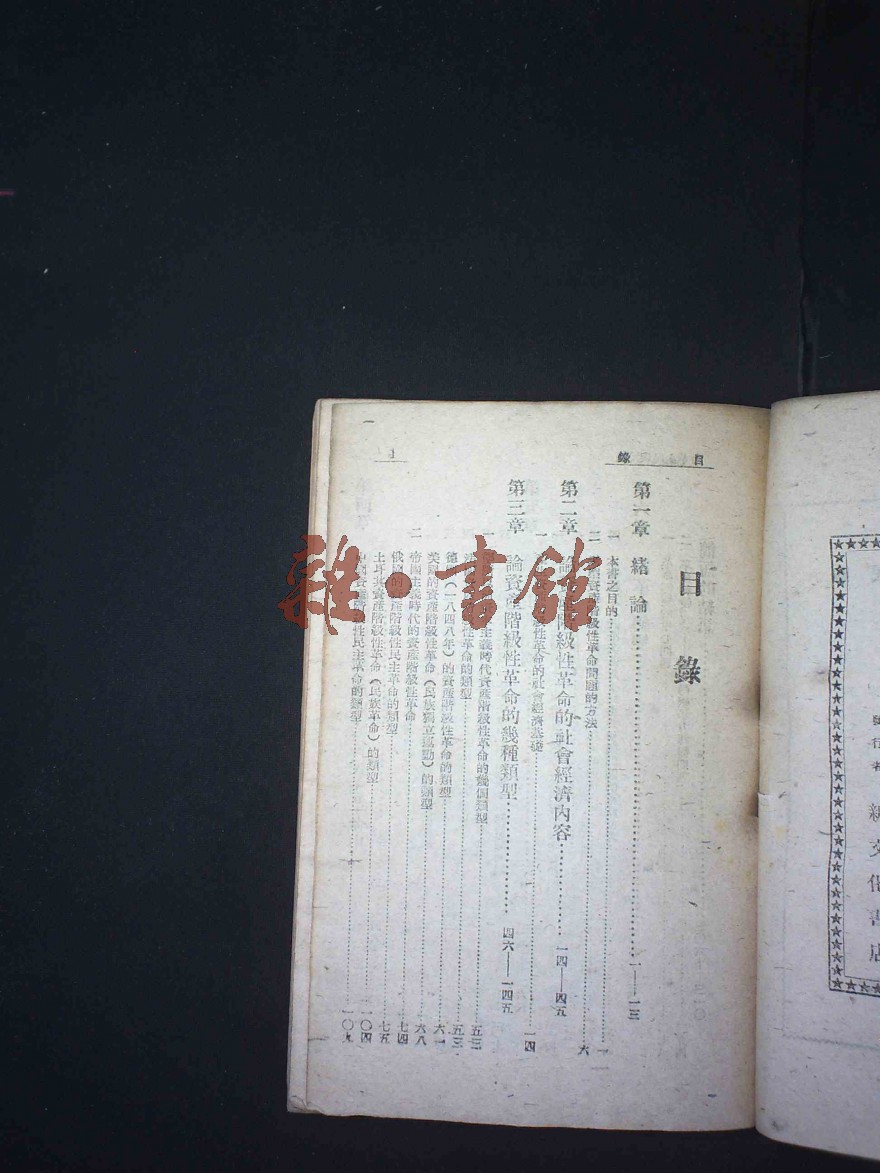 目錄
目錄
第一章 緒論……一——一三
一 本書之目的……一
二 資產階級性革命問題的方法……六
第二章 論 階級性革命的社會經濟內容……一四——四五
一 性革命的社會經濟基礎……一四
第三章 論資產階級性革命的幾種類型……四六——一四五
一 主義時代資產階級性革命的幾個類型……五三
性革命的類型……五三
(一八四八年)的資產階級性革命的類型……六一
美國的資產階級性革命(民族獨立運動)的類型……六八
二 帝國主義時代的資產階級性革命……七四
俄國的 產階級性民主革命的類型……七五
土耳其資產階級性革命(民族革命)的類型……一〇四
資產階級性民主革命的類型……一〇九
1
雜·書館
發行者
新文化書店